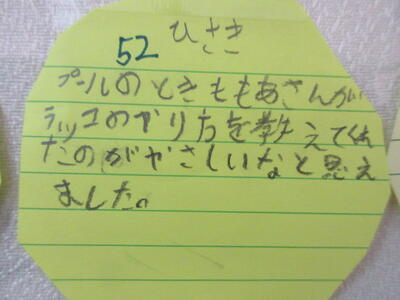 ひさき
52
プールのときももあさんが
ラッコのやり方を教えてくれ
たのがやさしいなと思え
ました。